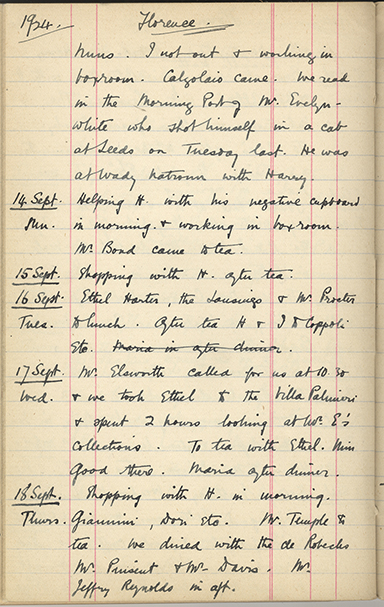 1924. Florence.
Nuns. I not out & working in
boxroom. Calzolaio came. We read
in the Morning Post of Mr. Evelyn-
White who shot himself in a cab
at Leeds on Tuesday last. He was
at Wady Natrum with Harry.
14 Sept. Helping H. with his negative cupboard
Sun. in morning & working in boxroom.
Mr. Bond came to tea.
15 Sept. Shopping with H. after tea.
16 Sept. Ethel Harter, the Lansings & Mr. Procter
Tues. to lunch. After tea H & I to Coppoli
Etc. Maria in after dinner.
17 Sept. Mr. Elsworth called for us at 10.30
Wed. & we took Ethel to the Villa Palmieri
& spent 2 hours looking at Mr. E's
collections. To tea with Ethel. Miss
Good there. Maria after dinner.
18 Sept. Shopping with H. in morning.
Thurs. Giannini, Dori Etc. Mr. Temple to
tea. We dined with the de Robecks
Mr. Prinsent & Mr. Davis. Mr
Jeffry Reynolds in aft.